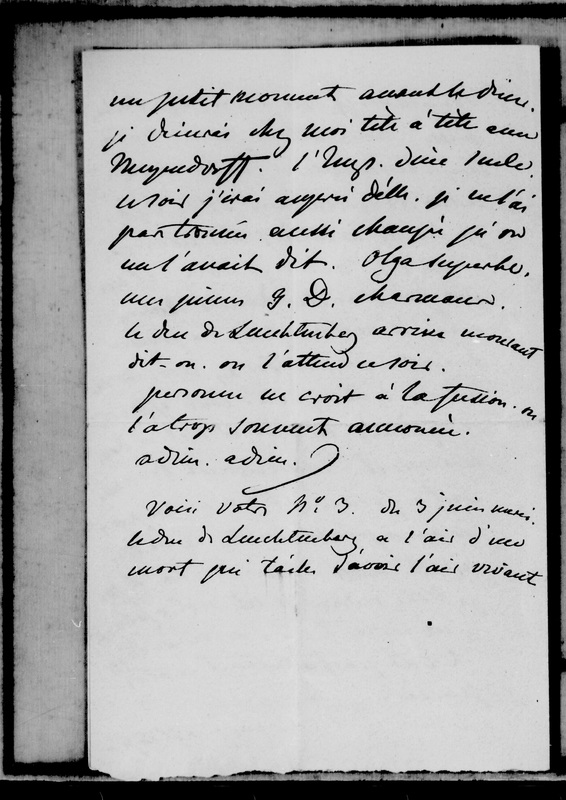 un petit moment avant le diner.
je dinerai chez moi tête à tête avec
Meyendorff. l'Emp. dine seule
ce soir j'irai auprès d'elle. je ne l'ai
pas trouvée aussi changée qu'on
me l'avait dit. Olga superbe.
les jeunes G. D. charmans.
le duc de Leuchtenberg arrive mourant
dit-on. on l'attend ce soir.
personne ne croit à la fusion. on
l'a trop souvent annoncée.
adieu. adieu.
Voici votre N° 3. du 3 juin merci.
le duc de Leuchtenberg a l'air d'un
mort qui tache d'avoir l'air vivant